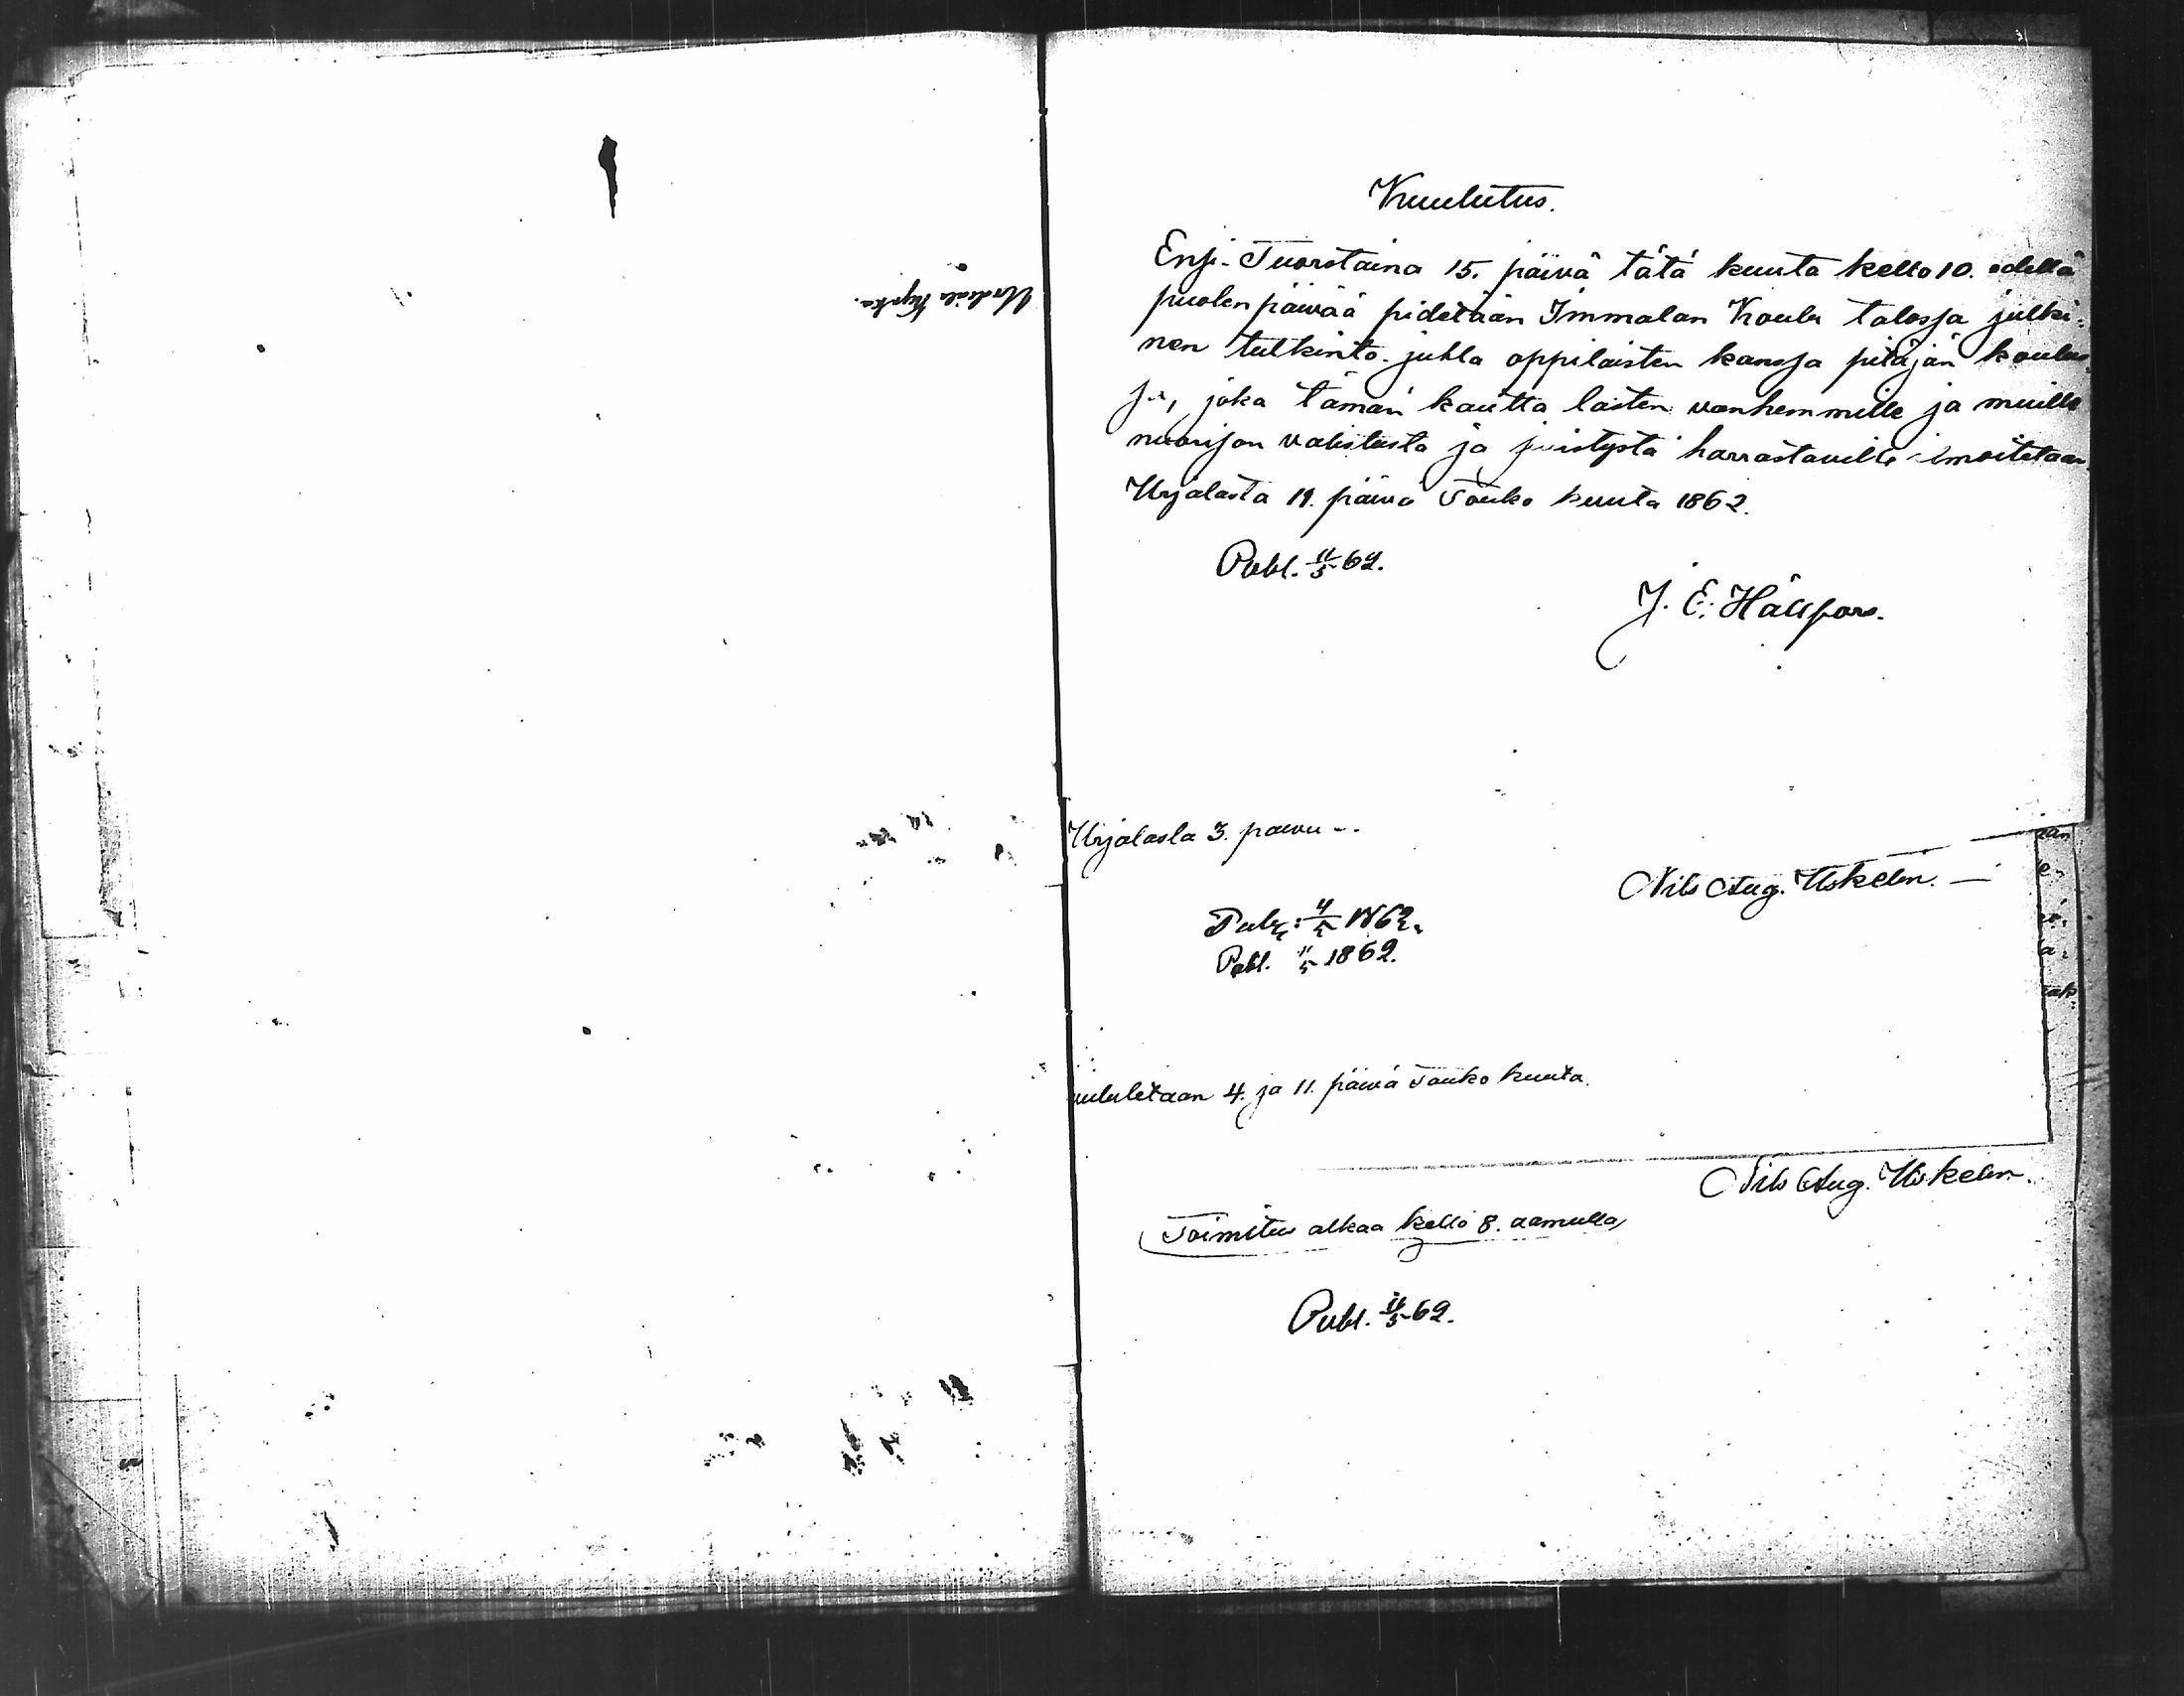 Urdiala Kyrka.
Kuulutus.
Ensi-Tuorstaina 15. päivä tätä kuuta kello 10. edellä
puolenpäivää pidetään Immalan Koulu talossa julki-
nen tutkinto-juhla oppilaisten kanssa pitäjän koulus-
sa, joka tämän kautta lasten vanhemmille ja muille
nuorison valistusta ja sivistystä harrastaville ilmoitetaan.
Urjalasta 11. päivä Touko kuuta 1862.
Publ. 11/5 62.
J. E. Hällfors.
Urjalasta 3. päivä
Nils Aug. Uskelin.
Publ: 4/5 1862.
Publ. 11/5 1862.
uulutetaan 4. ja 11. päivä Touko kuuta.
Nils Aug. Uskelin.
Toimitus alkaa kello 8. aamulla
Publ. 11/5 62.